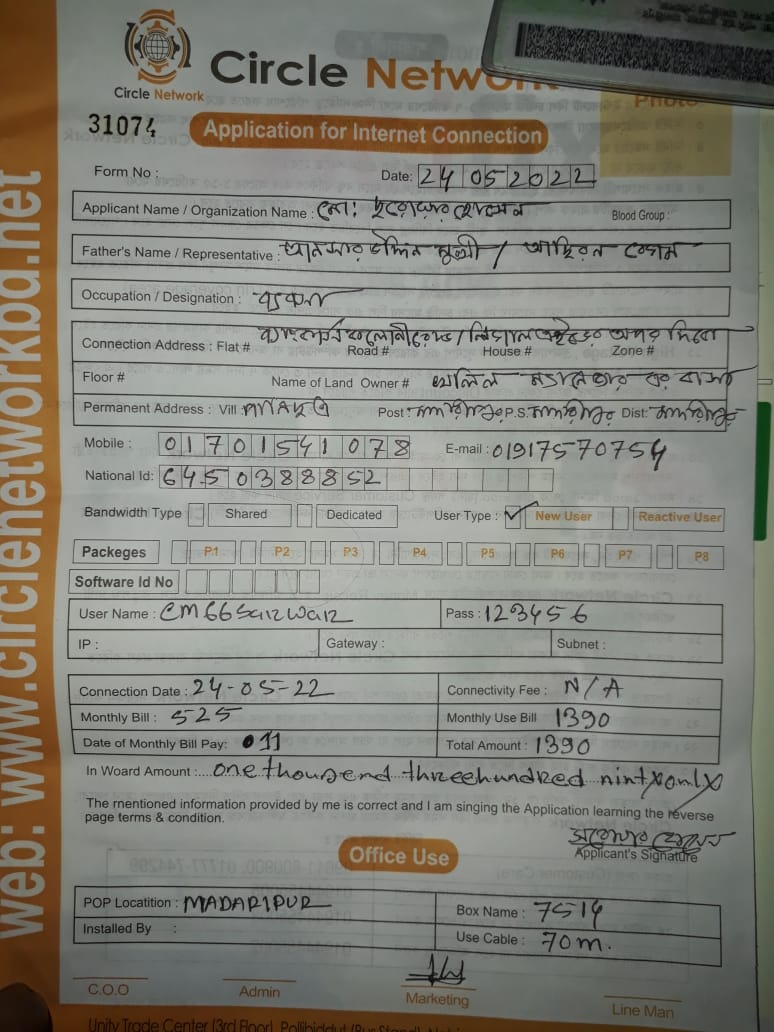 Circle Network
Circle Network
Photo
31074
Application for Internet Connection
Form No : Date: 24 05 2022
Applicant Name / Organization Name : মো: হোসেন Blood Group :
Father's Name / Representative : মুন্সী / বেগম
Occupation / Designation :
Connection Address : Flat # Road # House # Zone #
Floor # Name of Land Owner # খলিল
Permanent Address : Vill : Post : মাদারীপুর P.S. মাদারীপুর Dist: মাদারীপুর
Mobile : 01701541078 E-mail : 01917570754
National Id: 6450388852
Bandwidth Type Shared Dedicated User Type : ✓ New User Reactive User
Packeges P1 P2 P3 P4 P5 P6 P7 P8
Software Id No
User Name : CM66Sarwar Pass : 123456
IP : Gateway : Subnet :
Connection Date : 24-05-22 Connectivity Fee : N/A
Monthly Bill : 525 Monthly Use Bill 1390
Date of Monthly Bill Pay: 11 Total Amount : 1390
In Woard Amount :.... one thousend threehundred ninty only
The mentioned information provided by me is correct and I am singing the Application learning the reverse
page terms & condition.
Applicant's Signature
Office Use
POP Locatition : MADARIPUR Box Name : 7514
Installed By : Use Cable : 70 m.
C.O.O Admin Marketing Line Man
Unity Trade Center (3rd Floor),
web: www.circlenetworkbd.net